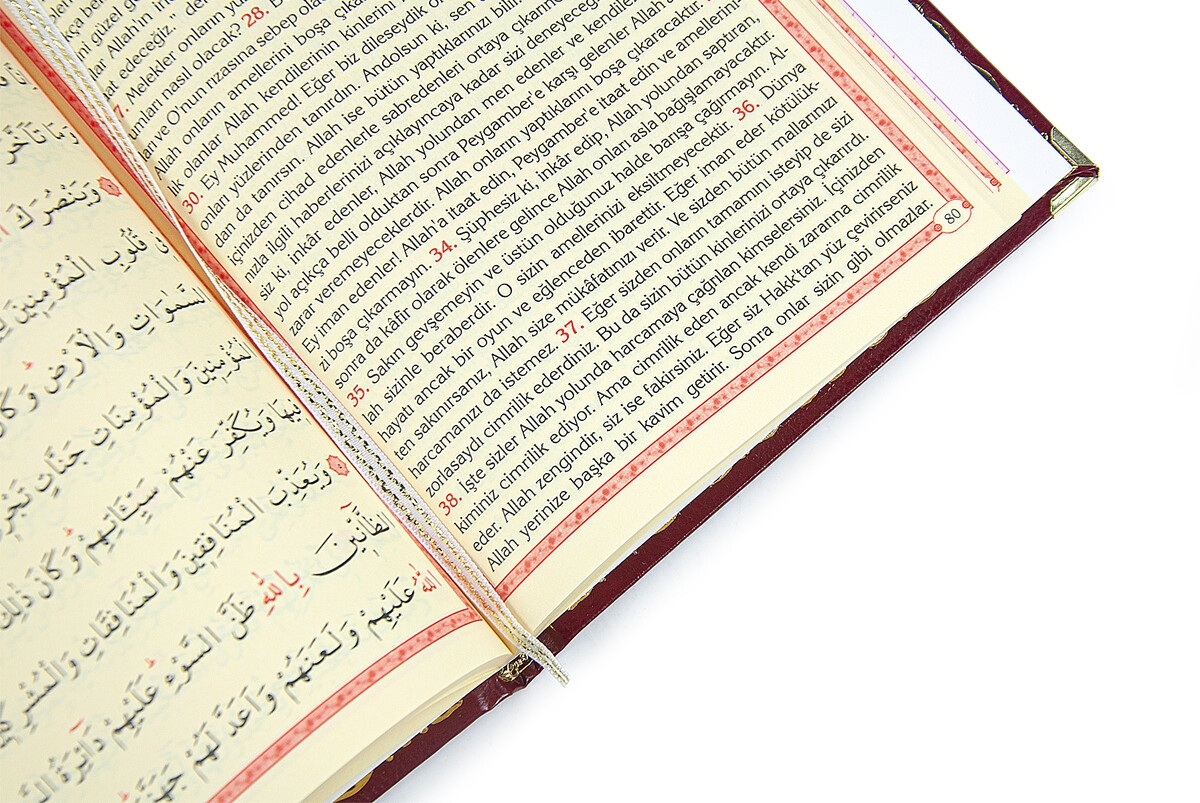 at edeceğiz.„
Melekler onların
umları nasıl olacak? 28.
ve O'nun rızasına sebep
Allah onların amellerini boşa
lik olanlar Allah kendilerinin kinlerini
30. Ey Muhammed! Eğer biz dileseydik
onları yüzlerinden tanırdın. Andolsun ki, sen
dan da tanırsın. Allah ise bütün yaptıklarınızı
içinizden cihad edenlerle sabredenleri ortaya
nızla ilgili haberlerinizi açıklayıncaya kadar sizi
siz ki, inkâr edenler, Allah yolundan men edenler ve
yol açıkça belli olduktan sonra Peygamber'e karşı gelenler
zarar veremeyeceklerdir. Allah onların yaptıklarını boşa çıkaracaktır.
Ey iman edenler! Allah'a itaat edin, Peygamber'e itaat edin ve amellerini-
zi boşa çıkarmayın. 34. Şüphesiz ki, inkâr edip, Allah yolundan saptıran,
sonra da kâfir olarak ölenlere gelince Allah onları asla bağışlamayacaktır.
35. Sakın gevşemeyin ve üstün olduğunuz halde barışa çağırmayın. Al-
lah sizinle beraberdir. O sizin amellerinizi eksiltmeyecektir. 36. Dünya
hayatı ancak bir oyun ve eğlenceden ibarettir. Eğer iman eder kötülük-
ten sakınırsanız, Allah size mükâfatınızı verir. Ve sizden bütün mallarınızı
harcamanızı da istemez. 37. Eğer sizden onların tamamını isteyip de sizi
zorlasaydı cimrilik ederdiniz. Bu da sizin bütün kinlerinizi ortaya çıkarırdı.
38. İşte sizler Allah yolunda harcamaya çağrılan kimselersiniz. İçinizden
kiminiz cimrilik ediyor. Ama cimrilik eden ancak kendi zararına cimrilik
eder. Allah zengindir, siz ise fakirsiniz. Eğer siz Hakk'tan yüz çevirirseniz
Allah yerinize başka bir kavim getirir. Sonra onlar sizin gibi olmazlar.
80
وَيَنْصُرَكَ
قُلُوبِ الْمُؤْمِنِينَ
السَّمٰوَاتِ وَالْاَرْضِ
الْمُؤْمِنِينَ وَالْمُؤْمِنَاتِ جَنَّاتٍ
فِيهَا وَيُكَفِّرَ عَنْهُمْ سَيِّئَاتِهِمْ وَكَانَ ذٰلِكَ
وَيُعَذِّبَ الْمُنَافِقِينَ وَالْمُنَافِقَاتِ
الظَّانِّينَ بِاللّٰهِ ظَنَّ السَّوْءِ عَلَيْهِمْ دَائِرَةُ
اللّٰهُ عَلَيْهِمْ وَلَعَنَهُمْ وَاَعَدَّ لَهُمْ